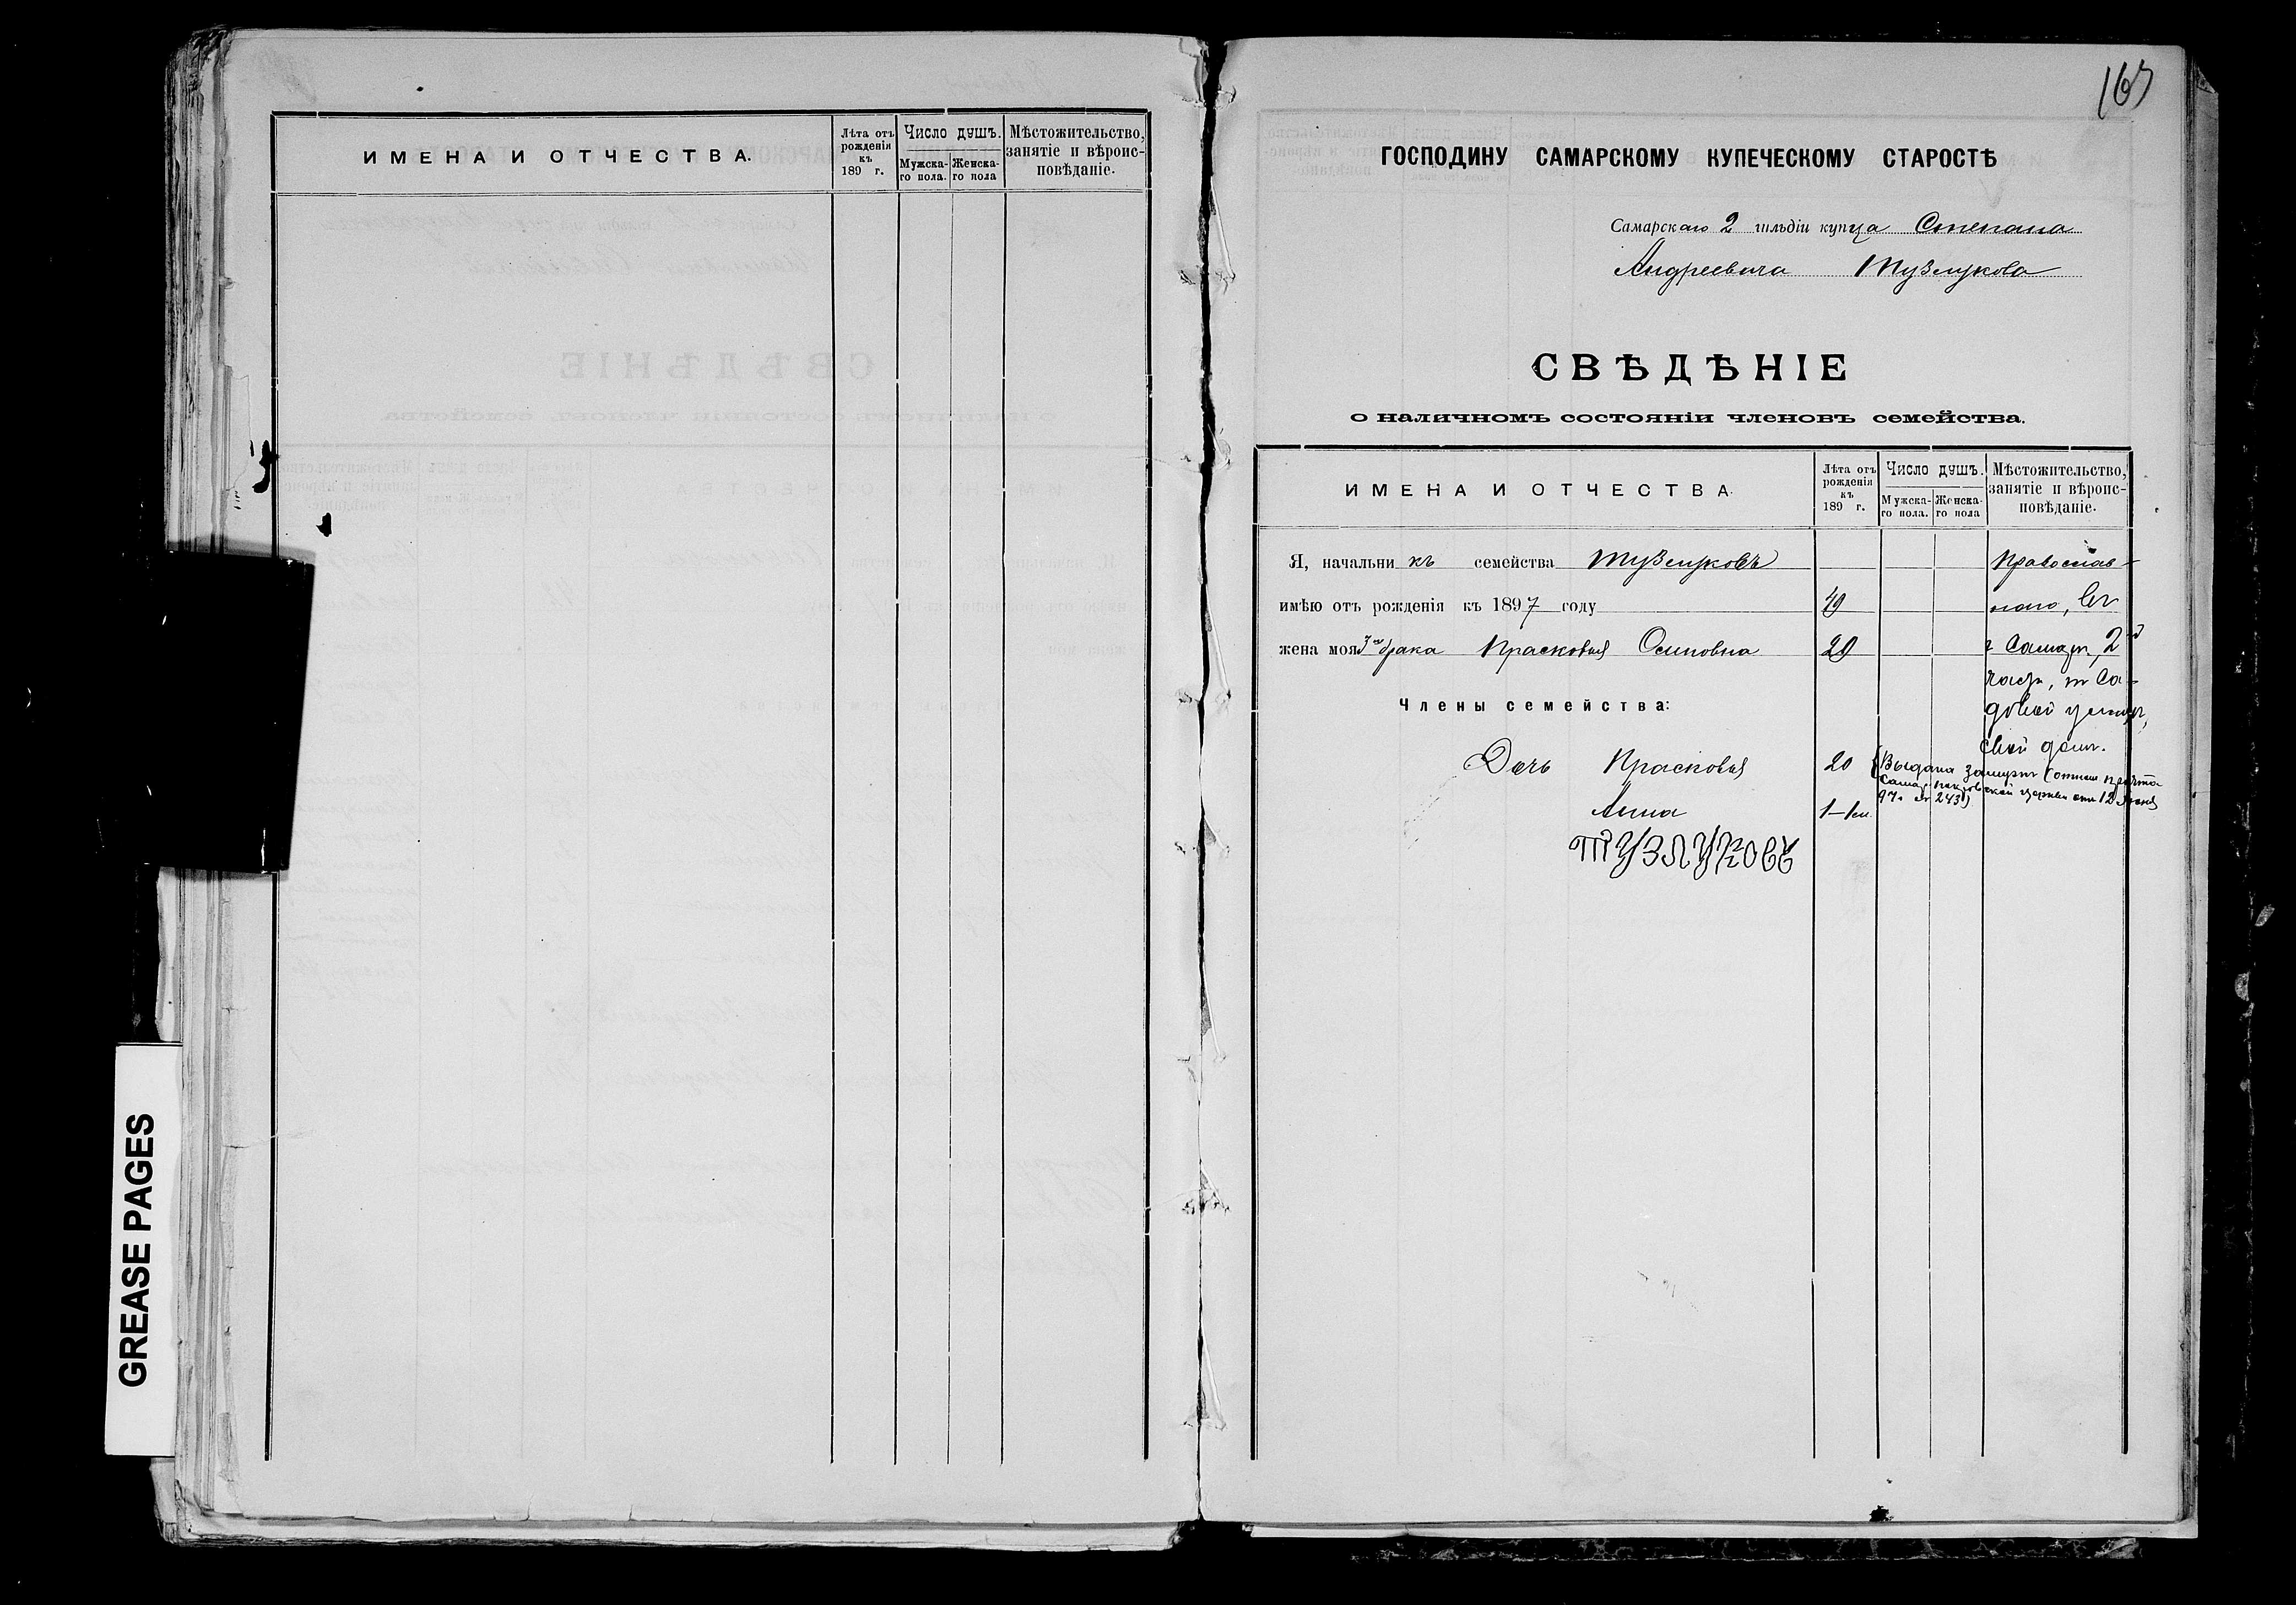 ИМЕНА И ОТЧЕСТВА.
Лѣта отъ рожденія къ 189 г.
Число душъ.
Мужска-го пола.
Женска-го пола
Мѣстожительство, занятіе и вѣроис-повѣданіе.
GREASE PAGES
ГОСПОДИНУ САМАРСКОМУ КУПЕЧЕСКОМУ СТАРОСТѢ
Самарскаго 2 гильдіи купца Степана
Андреевича Тузлукова
СВѢДѢНІЕ
о наличномъ состояніи членовъ семейства.
ИМЕНА И ОТЧЕСТВА.
Лѣта отъ рожденія къ 189 г.
Число душъ.
Мужска-го пола.
Женска-го пола
Мѣстожительство, занятіе и вѣроис-повѣданіе.
Я, начальникъ семейства Тузлуковъ Православ-
имѣю отъ рожденія къ 1897 году 49 наго, Въ
жена моя 3го брака Прасковья Осиповна 29 г Самарѣ, 2й
части, по Са-
Члены семейства: довой улицѣ,
свой домъ.
Дочь Прасковья 20 (Выдана замужъ (отнош причта
Самар Покровской церкви отъ 12 Июня
97 г. № 243)
Анна 1-1м.
ТУЗЛУКОВЪ